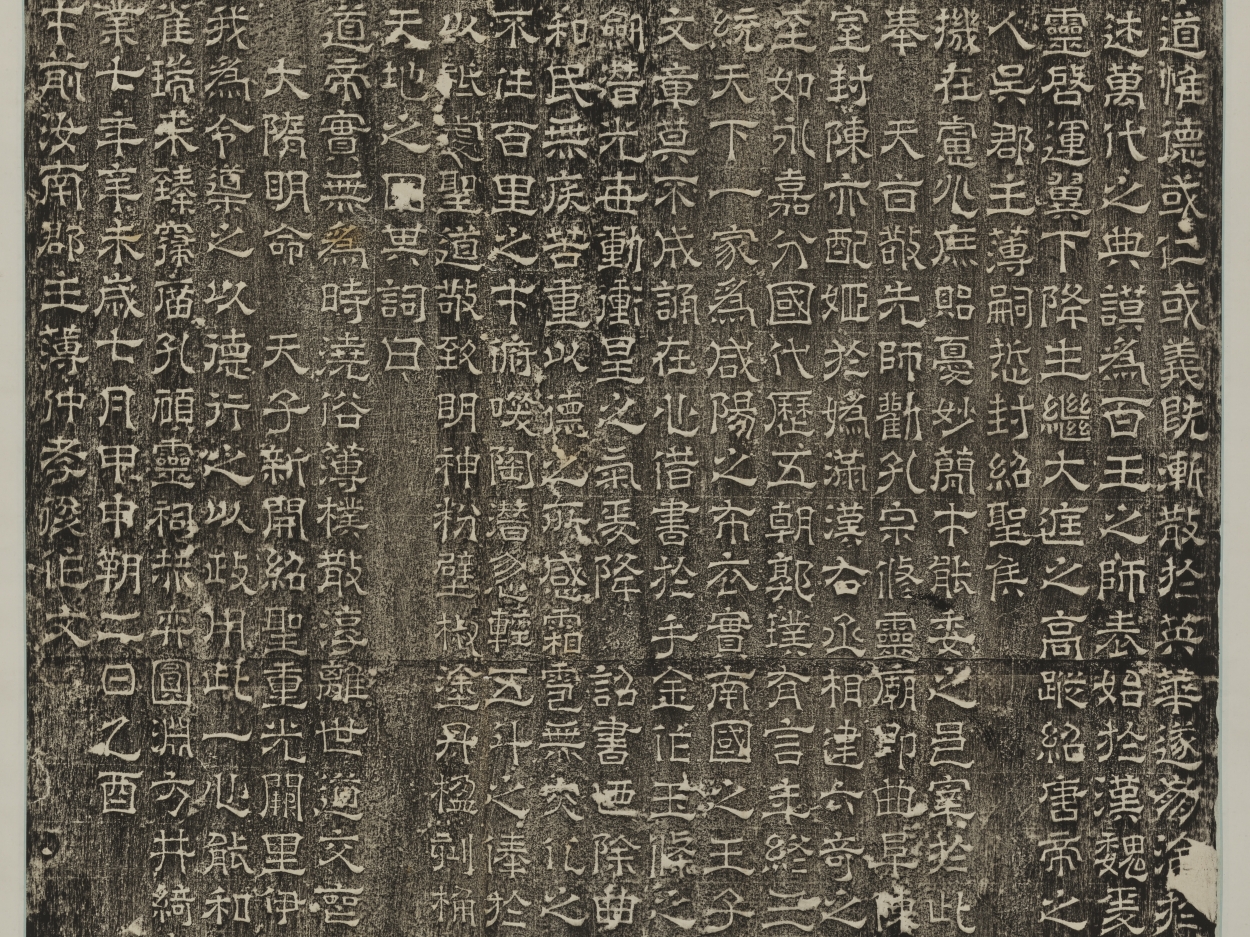 道惟德或仁或義既漸散於英華遂多洽於
迷萬代之典謨爲百王之師表始於漢魏爰
靈啓運翼下降生繼大庭之高蹤紹唐帝之
人吳郡主薄嗣悊封紹聖侯
機在慮必庶貽憂妙簡才能委之邑宰於此
奉 天旨敬先師勸孔宗修靈廟即曲阜陳
室封陳亦配姬於嬀滿漢右丞相建六奇之
至如永嘉分國代歷五朝郭璞有言年終三
統天下一家爲咸陽之布衣實南國之王子
文章莫不成誦在心借書於手金作玉條之
劒潛光每動衝星之氣爰降 詔書迺除曲
和民無疾苦重以德之所感霜雹無灾化之
不住百里之才俯喚陶潛忽輕五斗之俸於
以祗聖道敬致明神粉壁椒塗丹楹刻桷
天地之其詞曰
道帝實無爲時澆俗薄樸散淳離世道交喪
大隋明命 天子新開紹聖重光闕里伊
我爲令導之以德行之以政用此一心能和
雀瑞來臻孔碩靈祠恭弈圓淵方井綺
業七年辛未歲七月甲申朔二日乙酉
才前汝南郡主薄仲孝俊作文